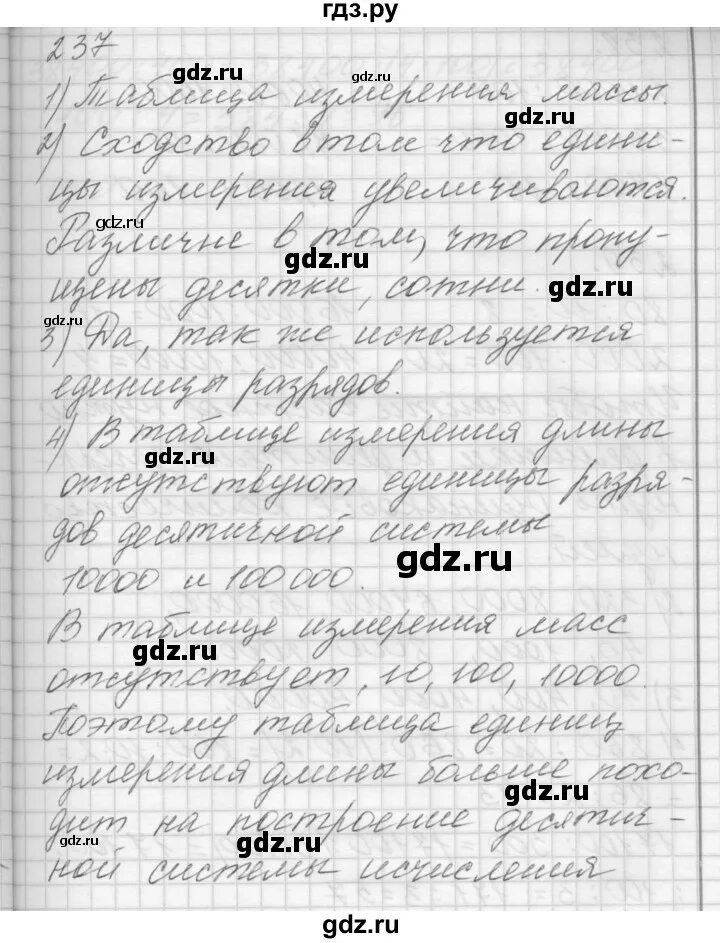 гдз.ру
237
1) Таблица измерения массы.
2) Сходство в том что едини-
цы измерения увеличиваются.
Различие в том, что пропу-
щены десятки, сотни.
3) Да, так же используется
единицы разрядов.
4) В таблице измерения длины
отсутствуют единицы разря-
дов десятичной системы
10000 и 100 000.
В таблице измерения масс
отсутствует, 10, 100, 10000.
Поэтому таблица единиц
измерения длины больше похо-
дит на построение десятич-
ной системы исчисления
gdz.ru
gdz.ru
gdz.ru
gdz.ru
gdz.ru
gdz.ru
gdz.ru
gdz.ru
gdz.ru
gdz.ru
gdz.ru
gdz.ru
gdz.ru